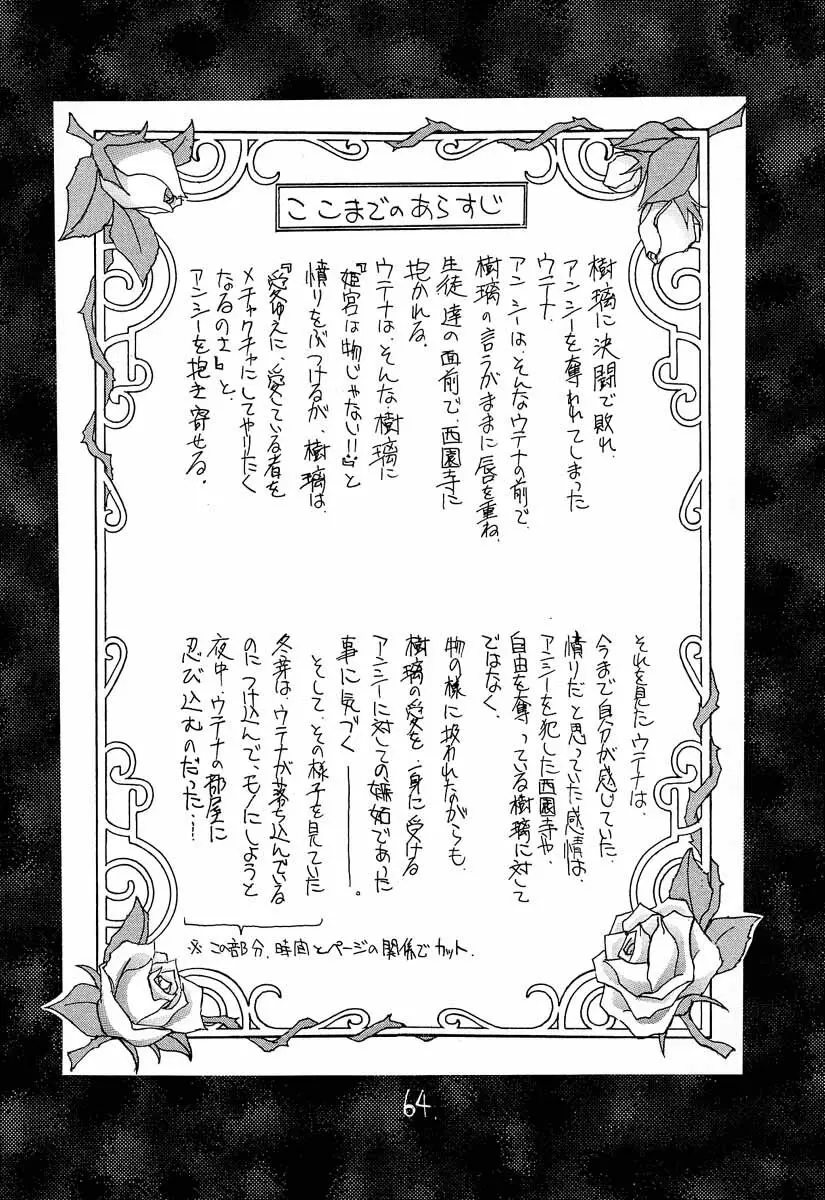 ここまでのあらすじ
樹璃に決闘で敗れ、
アンシーを奪われてしまった
ウテナ。
アンシーは、そんなウテナの前で、
樹璃の言うがままに唇を重ね、
生徒達の面前で、西園寺に
抱かれる。
ウテナは、そんな、樹璃に
『姫宮は物じゃない!!』と
憤りをぶつけるが、樹璃は、
『愛ゆえに、愛している者を
メチャクチャにしてやりたく
なるのさ』と、
アンシーを抱き寄せる。
それを見たウテナは、
今まで自分が感じていた、
憤りだと思っていた感情は、
アンシーを犯した西園寺や、
自由を奪っている樹璃に対して
ではなく、
物の様に扱われながらも、
樹璃の愛を一身に受ける
アンシーに対しての嫉妬であった
事に気づく———。
そして、その様子を見ていた
冬芽は、ウテナが落ち込んでいる
のにつけ込んで、モノにしようと
夜中、ウテナの部屋に
忍び込むのだった……
※この部分、時間とページの関係でカット.
64.